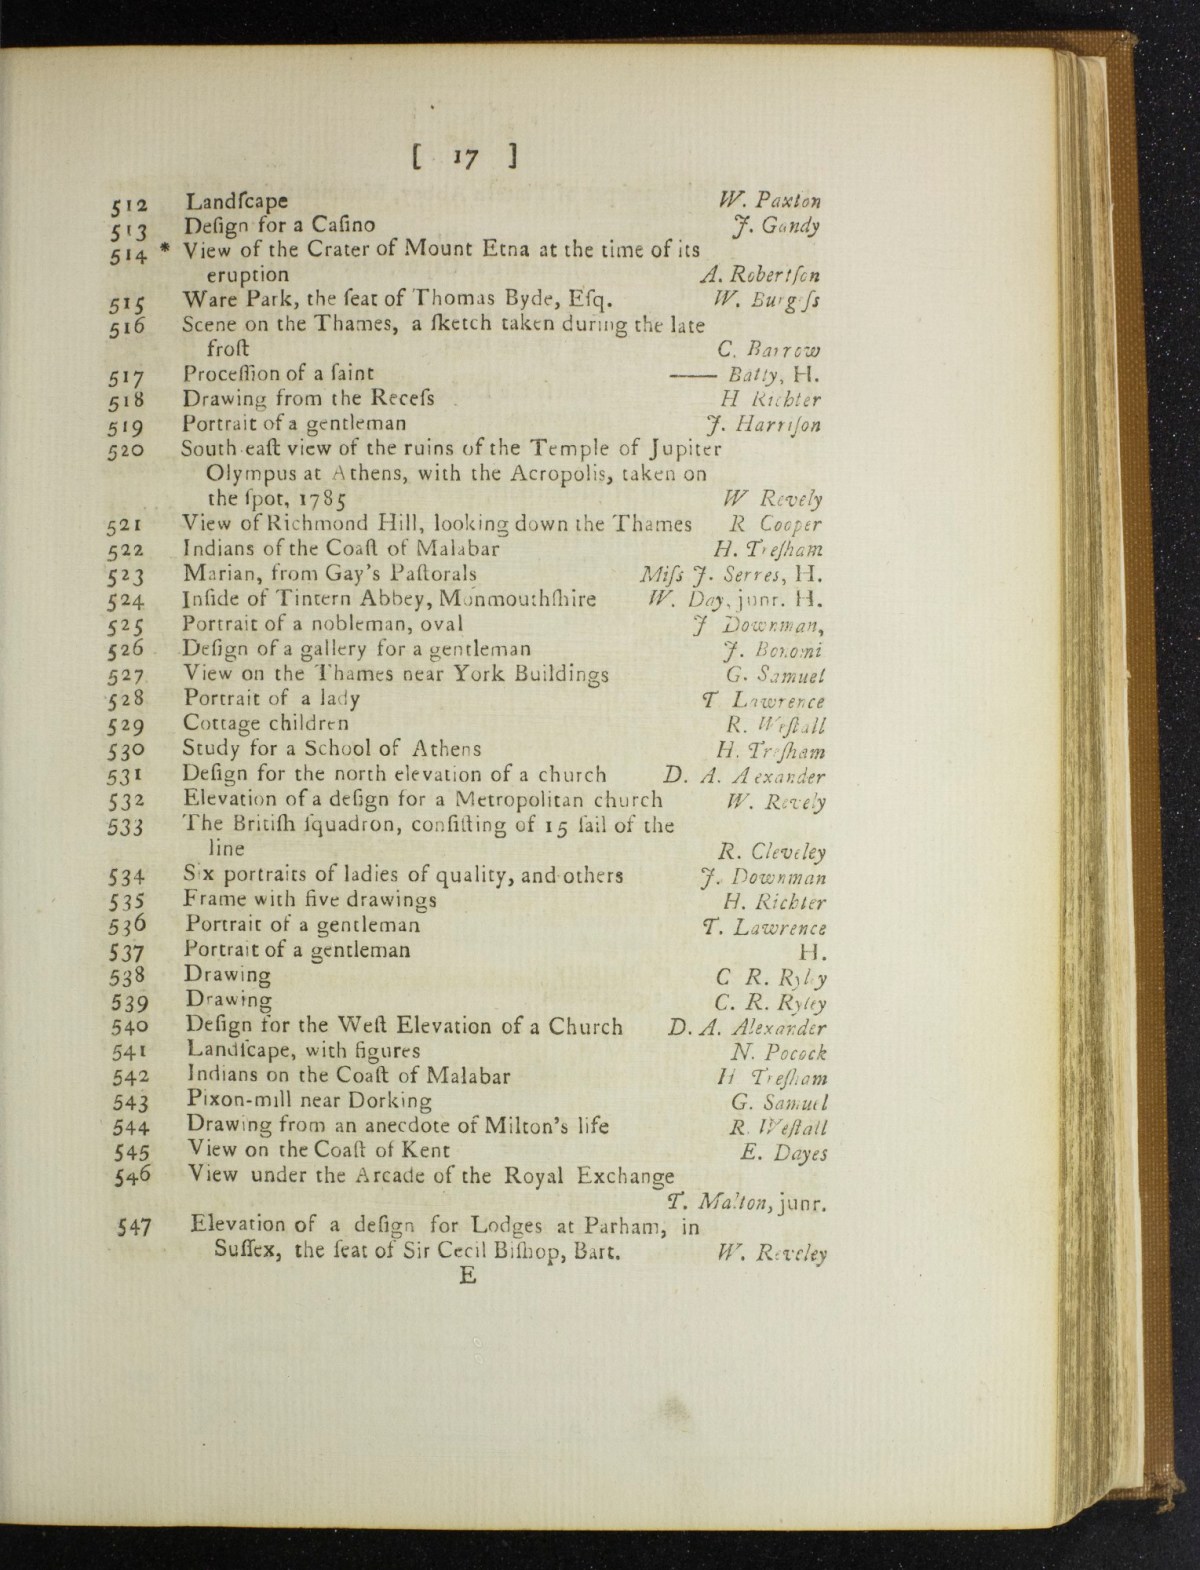 [ 17 ]
512 Landſcape W. Paxton
513 Deſign for a Caſino J. Gandy
514 * View of the Crater of Mount Etna at the time of its
eruption A. Robertſon
515 Ware Park, the ſeat of Thomas Byde, Eſq. W. Burgeſs
516 Scene on the Thames, a ſketch taken during the late
froſt C. Barrow
517 Proceſſion of a ſaint —— Batty, H.
518 Drawing from the Receſs H Richter
519 Portrait of a gentleman J. Harriſon
520 South eaſt view of the ruins of the Temple of Jupiter
Olympus at Athens, with the Acropolis, taken on
the ſpot, 1785 W Revely
521 View of Richmond Hill, looking down the Thames R Cooper
522 Indians of the Coaſt of Malabar H. Treſham
523 Marian, from Gay's Paſtorals Miſs J. Serres, H.
524 Inſide of Tintern Abbey, Monmouthſhire W. Day, junr. H.
525 Portrait of a nobleman, oval J Downman,
526 Deſign of a gallery for a gentleman J. Bonomi
527 View on the Thames near York Buildings G. Samuel
528 Portrait of a lady T Lawrence
529 Cottage children R. Weſtall
530 Study for a School of Athens H. Treſham
531 Deſign for the north elevation of a church D. A. A exander
532 Elevation of a deſign for a Metropolitan church W. Revely
533 The Britiſh ſquadron, conſiſting of 15 ſail of the
line R. Cleveley
534 Six portraits of ladies of quality, and others J. Downman
535 Frame with five drawings H. Richter
536 Portrait of a gentleman T. Lawrence
537 Portrait of a gentleman H.
538 Drawing C R. Ryley
539 Drawing C. R. Ryley
540 Deſign for the Weſt Elevation of a Church D. A. Alexander
541 Landſcape, with figures N. Pocock
542 Indians on the Coaſt of Malabar H Treſham
543 Pixon-mill near Dorking G. Samuel
544 Drawing from an anecdote of Milton's life R. Weſtall
545 View on the Coaſt of Kent E. Dayes
546 View under the Arcade of the Royal Exchange
T. Malton, junr.
547 Elevation of a deſign for Lodges at Parham, in
Suſſex, the ſeat of Sir Cecil Biſhop, Bart. W. Reveley
E